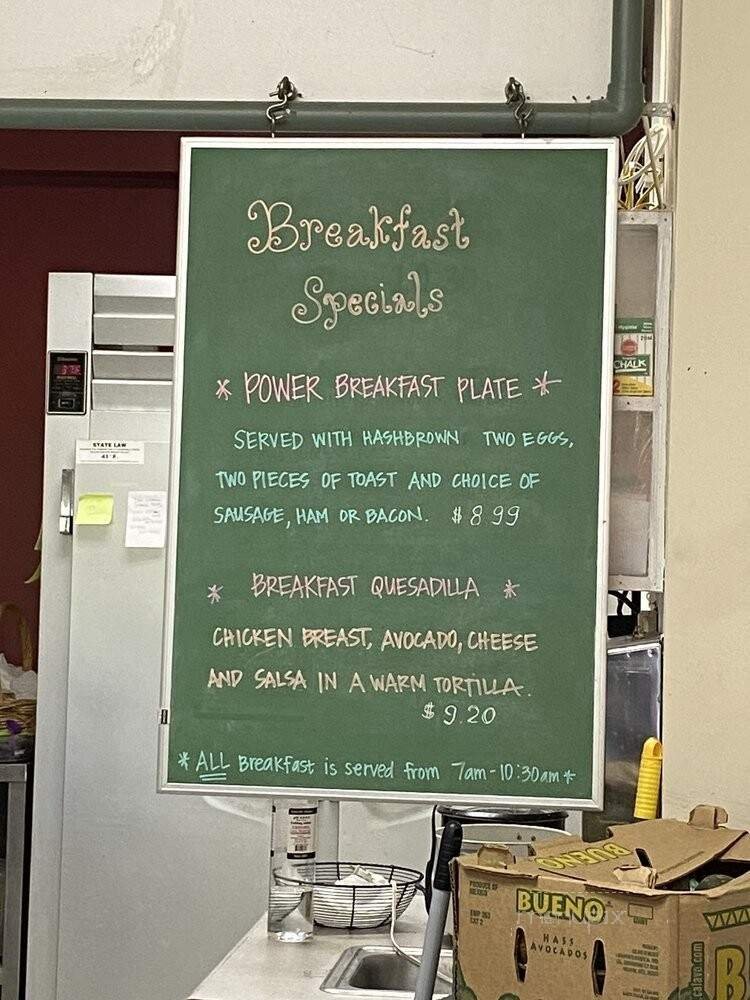 Breakfast
Specials
* POWER BREAKFAST PLATE *
SERVED WITH HASHBROWN TWO EGGS,
TWO PIECES OF TOAST AND CHOICE OF
SAUSAGE, HAM OR BACON. $8.99
* BREAKFAST QUESADILLA *
CHICKEN BREAST, AVOCADO, CHEESE
AND SALSA IN A WARM TORTILLA.
$9.20
* ALL Breakfast is served from 7am-10:30am *
STATE LAW
41° F.
CHALK
BUENO
PRODUCE OF
MEXICO
BUENO
HASS
AVOCADOS
calavo.com
B
menupix